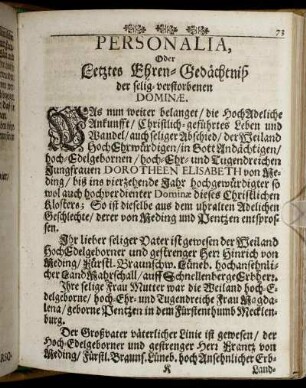 73
PERSONALIA,
Oder
Letztes Ehren-Gedächtniß
der selig-verstorbenen
DOMINÆ.
WAs nun weiter belanget/ die HochAdeliche
Ankunfft/ Christlich-geführtes Leben und
Wandel/ auch selige Abschied/ der Weiland
HochEhrwürdigen/ in Gott Andächtigen/
hoch-Edelgebornen/ hoch-Ehr- und Tugendreichen
Jungfrauen DOROTHEEN ELISABETH von Me-
ding/ bis ins vierzehende Jahr hochgewürdigter so
wol auch hochverdienter Dominæ dieses Christlichen
Klosters: So ist dieselbe aus dem uhralten Adelichen
Geschlechte/ derer von Meding und Pentzen entspros-
sen.
Ihr lieber seliger Vater ist gewesen der Weiland
HochEdelgeborner und gestrenger Herr Hinrich von
Meding/ Fürstl. Braunschw. Lüneb. hochansehnli-
cher Land Marschall/ auff Schnellenberge Erbherr.
Ihre selige Frau Mutter war die Weiland hoch-E-
delgeborne/ hoch-Ehr- und Tugendreiche Frau Magda-
lena/ geborne Pentzen in dem Fürstenthumb Mecklen-
burg.
Der Großvater väterlicher Linie ist gewesen/ der
Hoch-Edelgeborner und gestrenger Herr Frantz von
Meding/ Fürstl. Braunß. Lüneb. hoch Ansehnlicher Erb-
K Land-